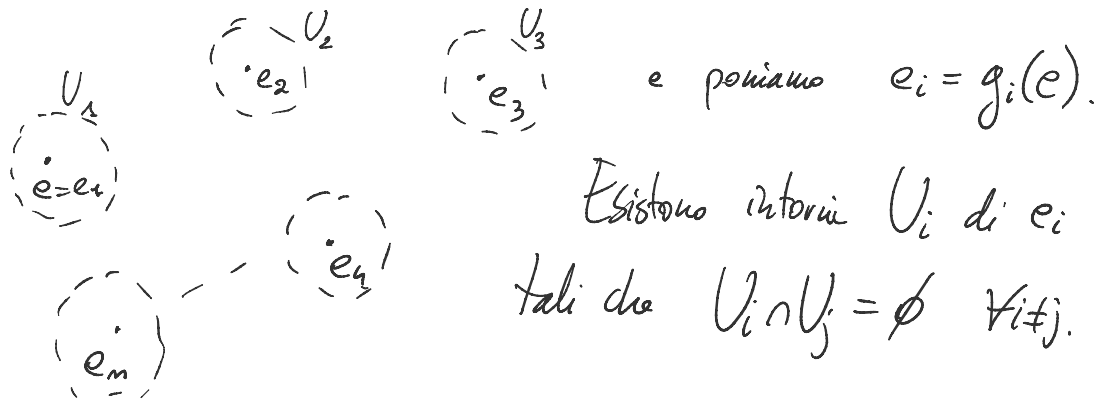 U₁
e=e₁
U₂
e₂
U₃
e₃
e₄
eₙ
e poniamo eᵢ = gᵢ(e).
Esistono intorni Uᵢ di eᵢ
tali che Uᵢ ∩ Uⱼ = ∅ ∀i≠j.